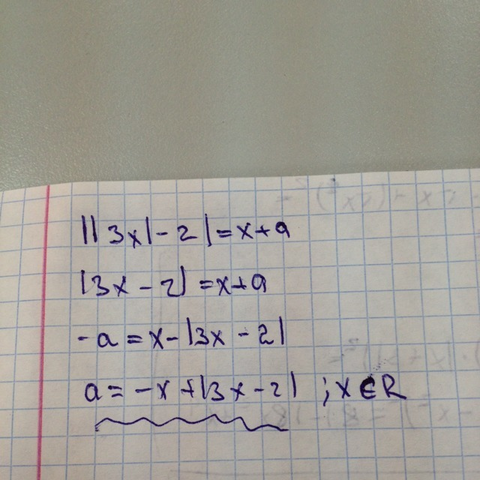 ||3x|-2|=x+a
|3x-2|=x+a
-a=x-|3x-2|
a=-x+|3x-2| ; x∈R